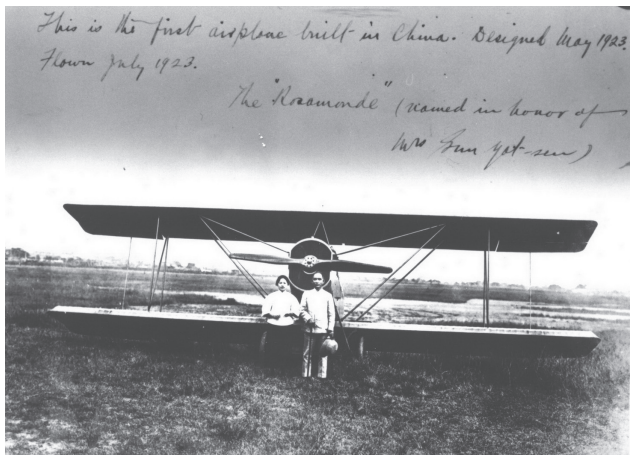 This is the first airplane built in China. Designed May 1923.
Flown July 1923.
The "Rosamonde" (named in honor of
Mrs Sun Yat-sen)